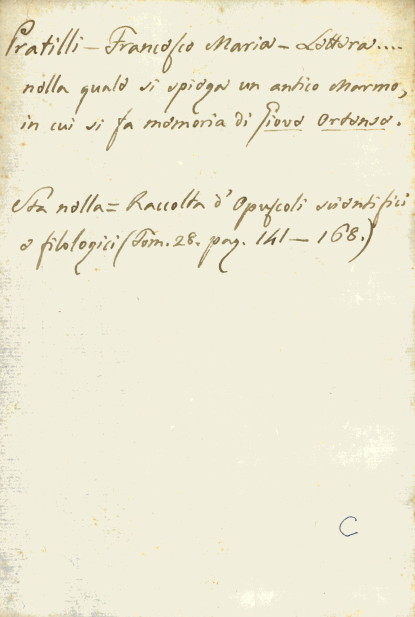 Pratilli – Francesco Maria – Lettera....
nella quale si spiega un antico Marmo,
in cui si fa memoria di Giove Ortense.
Sta nella = Raccolta d'Opuscoli scientifici
e filologici (Tom. 28. pag. 141 – 168.)
C